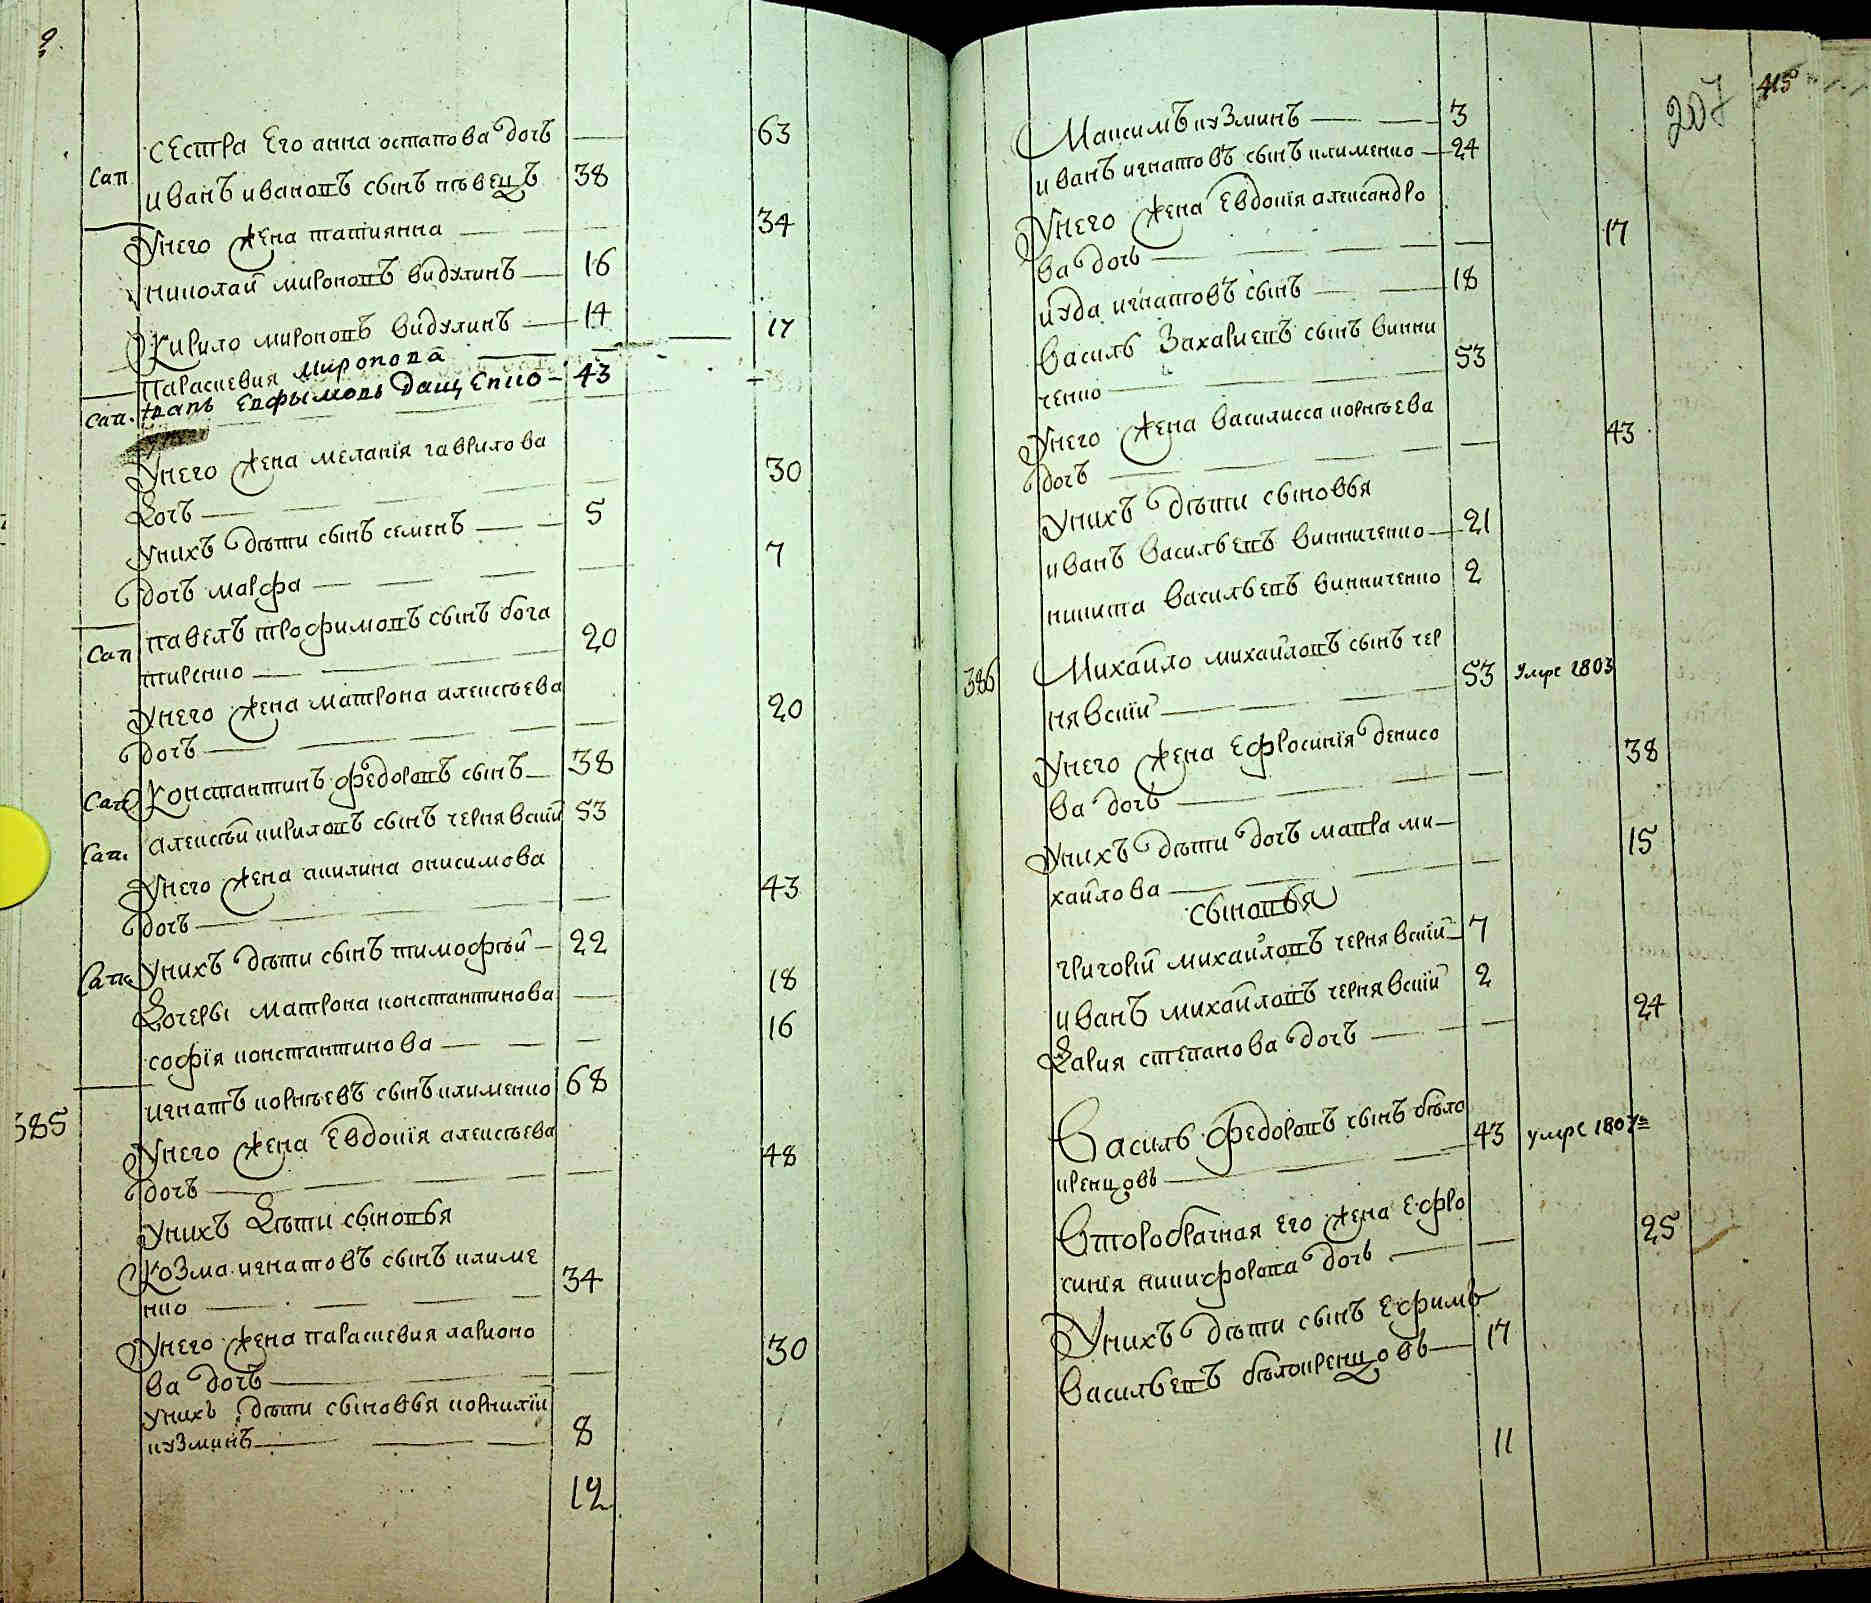 сестра его анна остапова дочь — 63
Сап иванъ ивановъ сынъ пѣвецъ 38
Унего жена татиянна — 34
николай мироновъ видулинъ — 16
Кирило мироновъ видулинъ — 14
Параскевия миронова — 17
Сап. иванъ Евфымовъ Дащенко — 43
Унего жена меланія гаврилова
дочъ — 30
Унихъ дѣти сынъ семенъ — 5
дочъ марфа — 7
Сап павелъ трофимовъ сынъ бога
тиренко — 20
Унего жена матрона алексѣева
дочъ — 20
Сап Константинъ федоровъ сынъ — 38
Сап. алексѣй кириловъ сынъ чернявский 53
Унего жена акилина онисимова
дочъ — 43
Сап. Унихъ дѣти сынъ тимофѣй — 22
Дочеры матрона константинова — 18
софія константинова — 16
385 игнатъ корнѣевъ сынъ клименко 68
Унего жена Евдокія алексѣева
дочъ — 48
Унихъ Дѣти сыновья
Козма игнатовъ сынъ климе
нко — 34
Унего жена параскевия ларионо
ва дочъ — 30
Унихъ дѣти сыновья корнилій
кузминъ — 8
12
207 415
Максимъ кузминъ — 3
иванъ игнатовъ сынъ клименко — 24
Унего жена Евдокія александро
ва дочь — 17
иуда игнатовъ сынъ — 18
Василь Захариевъ сынъ винни
ченко — 53
Унего жена василисса корнѣева
дочъ — 43
Унихъ дѣти сыновья
иванъ васильевъ винниченко — 21
никита васильевъ винниченко 2
386 Михайло михайловъ сынъ чер
нявский — 53 Умре 1803
Унего жена Ефросинія денисо
ва дочь — 38
Унихъ дѣти дочъ мавра ми–
хайлова — 15
сыновья
григорій михайловъ чернявский — 7
иванъ михайловъ чернявский 2
Дария степанова дочъ — 24
Василь федоровъ сынъ бѣло
кренцовъ — 43 умре 1807
Второбрачная его жена Ефро
синия никифорова дочь — 25
Унихъ дѣти сынъ Ефимъ
васильевъ бѣлокренцовъ — 17
11